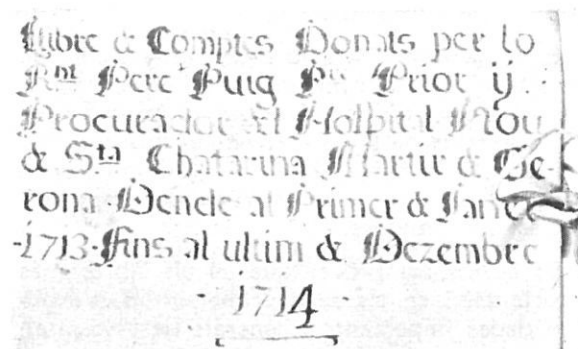 Llibre de Comptes Donats per lo
Rnt Pere Puig Pre Prior y
Procurador del Hospital Nou
de Sta Chatarina Martir de Ge
rona Dende al Primer de Janer
-1713-Fins al ultim de Dezembre
- 1714